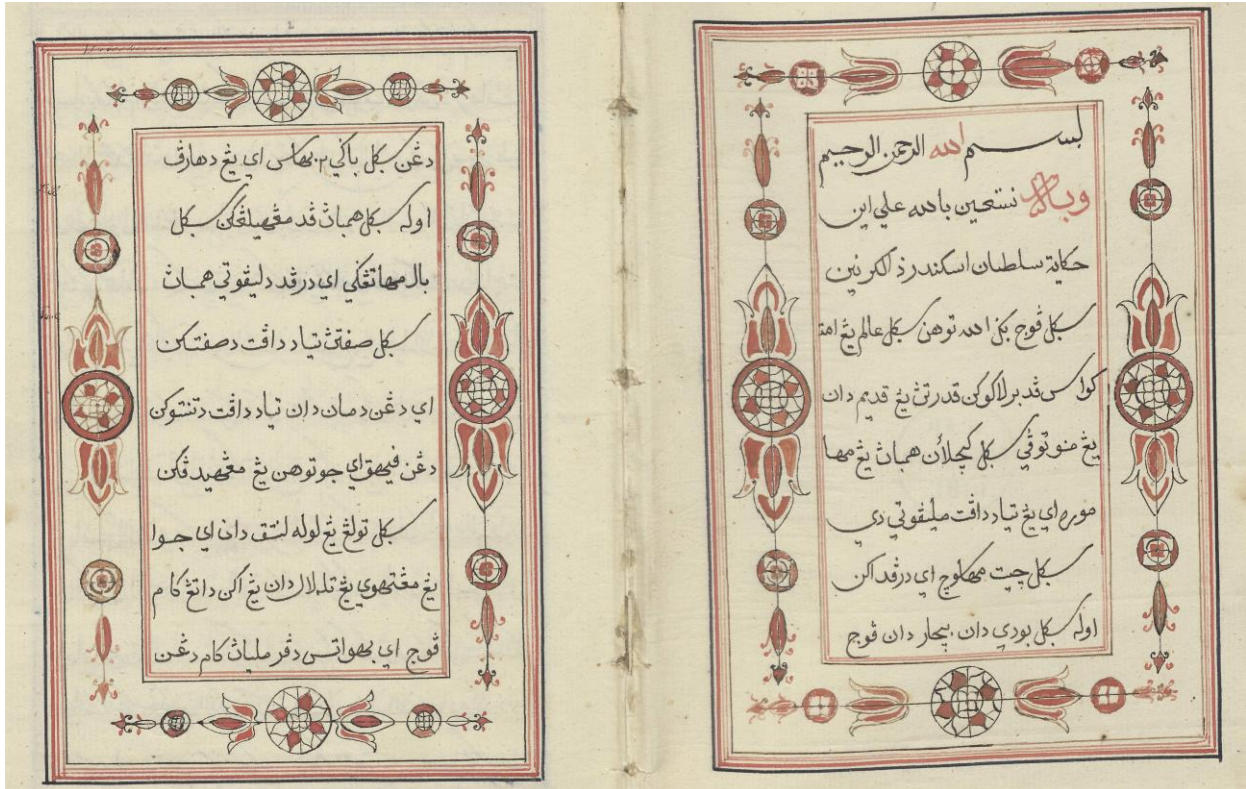 بسم الله الرحمن الرحيم
وبه نستعين بالله علي اين
حكاية سلطان اسكندر ذالكرنين
سكل ڤوج بكي الله توهن سكل عالم يڠ امت
كواس ڤد برلاكوكن قدرتڽ يڠ قديم دان
يڠ منوتوڤي سكل كچلأن همباڽ يڠ مها
موره اي يڠ تياد داڤت مليڤوتي دي
سكل چيت مهاسوچ اي درڤد اكن
اوله سكل بودي دان بچار دان ڤوج
دڠن سكل باكي٢ بهاس اي يڠ دهارڤ
اوله سكل همباڽ ڤد مڠهيلڠكن سكل
بال مهاتڠكي اي درڤد دليڤوتي همباڽ
سكل صفتڽ تياد داڤت دصفتكن
اي دڠن دمان دان تياد داڤت دتنتوكن
دڠن ڤيهق اي جو توهن يڠ مڠهيدڤكن
سكل تولڠ يڠ لوله لنتق دان اي جوا
يڠ مڠتهوي يڠ تله لال دان يڠ اكن داتڠ كام
ڤوج اي بهواتس دڤرملياڽ كام دڠن